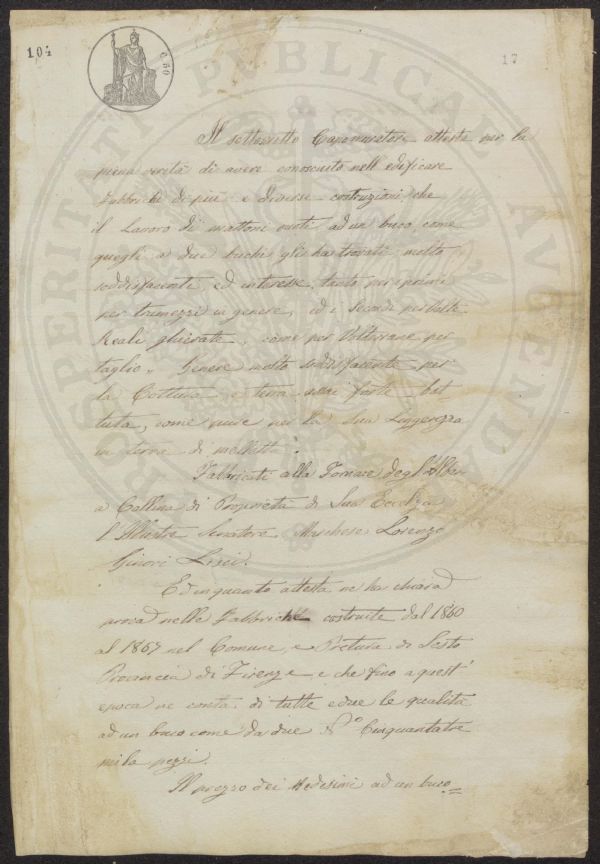 104
C. 50
17
PROSPERITATI PUBLICAE AUGENDAE
Il sottoscritto Capomuratore attesta per la
piena verità di avere conosciuto nell edificare
Fabbriche di più e diverse costruzioni, che
il Lavoro di mattoni vuoti ad un buco, come
quegli a due buchi gli ha trovati molto
soddisfacente, ed interesse, tanto per i primi
per tramezzi in genere, ed i Secondi per Volte
Reali, come per Volterrane per
taglio. Genere molto soddisfacente per
la Cottura e terra assai forte bat
tuta, come pure per la Sua Leggerezza
in terra di melletta.
Fabbricati alla Fornace degl'Alberi
a Collina di Proprietà di Sua Eccellza
l'Illustre Senatore Marchese Lorenzo
Ginori Lisci.
Ed inquanto attesta ne ha chiara
prova nelle Fabbriche costruite dal 1860
al 1867 nel Comune, e Pretura di Sesto
Provincia di Firenze e che fino a quest'
epoca ne conta di tutte e due le qualità
ad un buco come da due N.º Cinquantatre
mila pezzi.
Il prezzo dei Medesimi ad un buco=